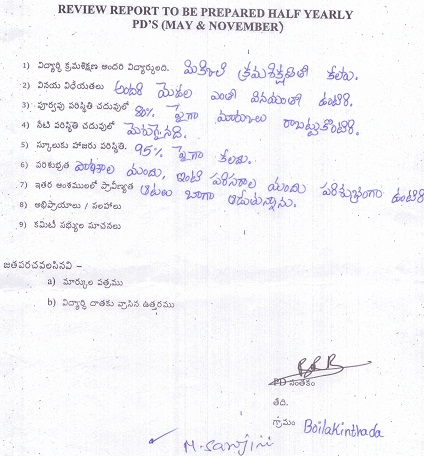 REVIEW REPORT TO BE PREPARED HALF YEARLY
PD'S (MAY & NOVEMBER)
1) విద్యార్థి క్రమశిక్షణ అందరి విద్యార్థులంది. క్రమశిక్షణతో కలదు.
2) వినయ విధేయతలు అందరి ఎంతో వినయంతో ఉంటారు.
3) పూర్వపు పరిస్థితి చదువులో 80% పైగా మార్కులు రాబట్టుకొంటారు.
4) నేటి పరిస్థితి చదువులో మెరుగైనది.
5) స్కూలుకు హాజరు పరిస్థితి. 95% పైగా కలదు.
6) పరిశుభ్రత పాఠశాల యందు, ఇంటి పరిసరాల యందు పరిశుభ్రంగా ఉంటారు
7) ఇతర అంశములలో ప్రావీణ్యత ఆటలు బాగా ఆడుతున్నాను.
8) అభిప్రాయాలు / సలహాలు
9) కమిటీ సభ్యుల సూచనలు
జతపరచవలసినవి –
a) మార్కుల పత్రము
b) విద్యార్థి దాతకు వ్రాసిన ఉత్తరము
PD సంతకం
తేది.
గ్రామం Boilakinthada
M. Sanjini